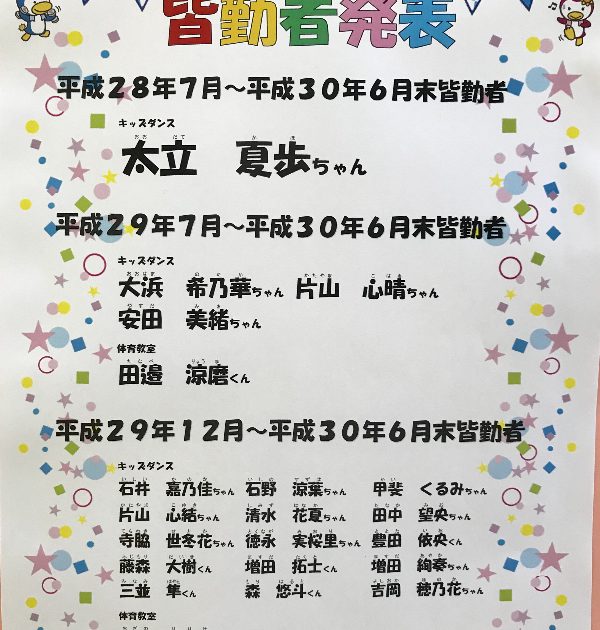 皆勤者発表
平成28年7月～平成30年6月末皆勤者
キッズダンス
太立　夏歩ちゃん
平成29年7月～平成30年6月末皆勤者
キッズダンス
大浜　希乃華ちゃん 片山　心晴ちゃん
安田　美緒ちゃん
体育教室
田邉　涼磨くん
平成29年12月～平成30年6月末皆勤者
キッズダンス
石井　嘉乃佳ちゃん 石野　涼葉ちゃん 甲斐　くるみちゃん
片山　心結ちゃん 清水　花夏ちゃん 田中　望央ちゃん
寺脇　世冬花ちゃん 徳永　実桜里ちゃん 豊田　依央くん
藤森　大樹くん 増田　拓士くん 増田　絢泰くん
三並　隼くん 森　悠斗くん 吉岡　穂乃花ちゃん
体育教室